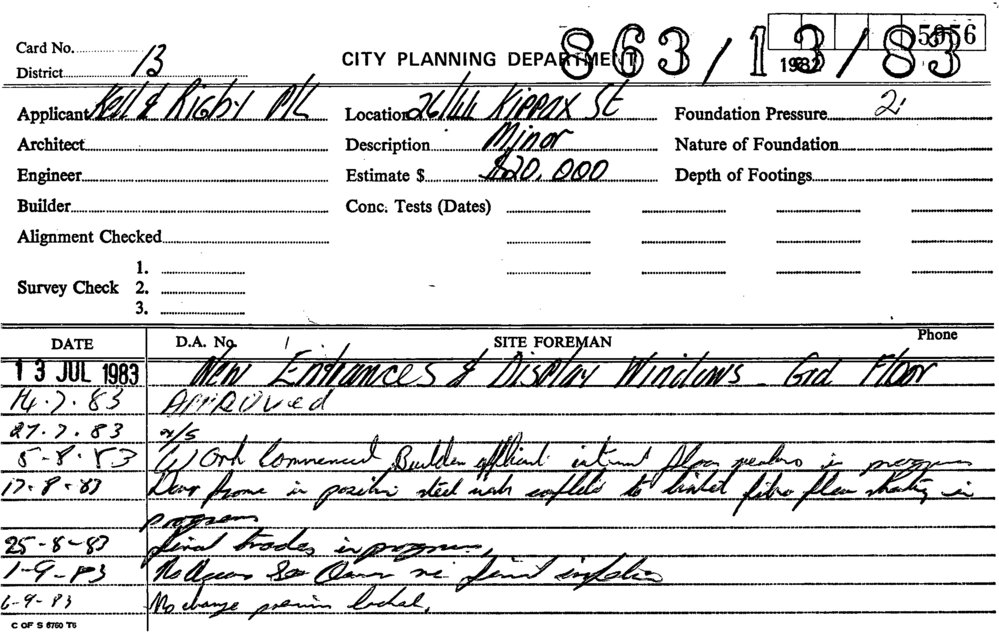 Card No. 13
District
CITY PLANNING DEPARTMENT
863/13/83
5956
1982
Applicant Kell & Rigby P/L
Location 26/44 Kippax St
Foundation Pressure 2
Architect
Description Minor
Nature of Foundation
Engineer
Estimate $ $20,000
Depth of Footings
Builder
Conc. Tests (Dates)
Alignment Checked
Survey Check 1.
2.
3.
DATE D.A. No. SITE FOREMAN Phone
13 JUL 1983 New Entrances & Display Windows - Grd Floor
14.7.83 APPROVed
27.7.83 n/s
5-8-83 Work Commenced Builder in progress
17.8.83 Door frame in position steel to lintel in
progress
25-8-83 final trades in progress,
1-9-83 No Access See Owner re final
6-9-83 No change premises locked.
C OF S 6760 T5